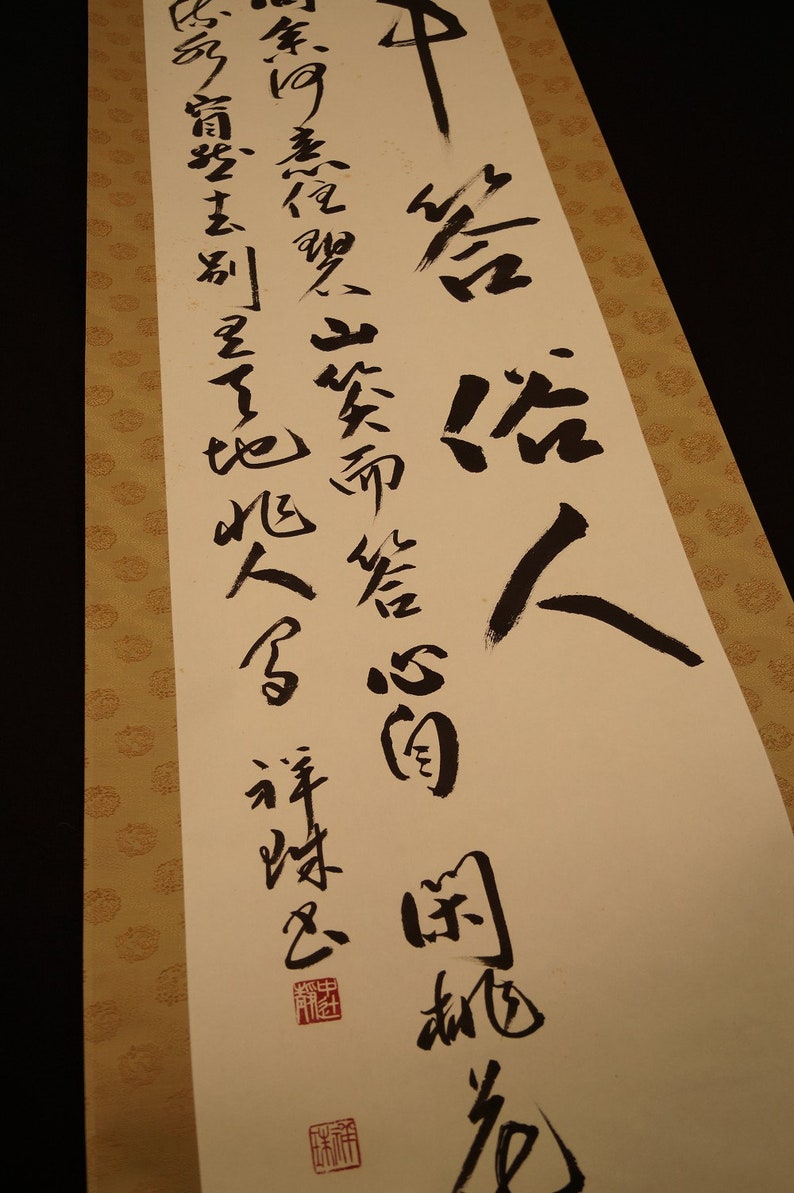 中答俗人
問余何意住碧山笑而答心自閑桃花
流水窅然去別是天地非人間 祥珠書
祥珠